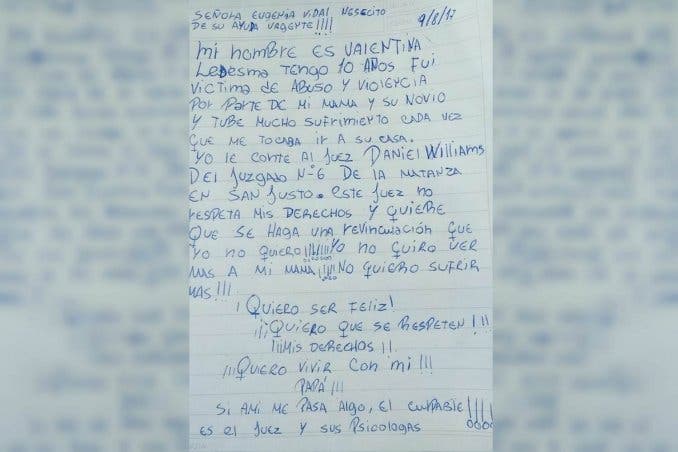 SEÑORA EUGENIA VIDAL NESECITO
DE SU AYUDA URGENTE!!!!
9/8/17
Mi nombRE ES VALENTINA
LEDESMA TENGO 10 AÑOS FUI
VICTIMA DE ABUSO Y VIOLENCIA
POR PARTE DE MI MAMA Y SU NOVIO
Y TUBE MUCHO SUFRIMIENTO CADA VEZ
QUE ME TOCABA IR A SU CASA.
YO LE CONTE AL JUEZ DANIEL WILLIAMS
DEL JUZGADO Nº6 DE LA MATANZA
EN SAN JUSTO. ESTE JUEZ NO
RESPETA MIS DERECHOS Y QUIERE
QUE SE HAGA UNA REVINCULACIÓN QUE
YO NO QUIERO!!!!!!! YO NO QUIRO VER
MAS A MI MAMA!!!! NO QUIERO SUFRIR
MAS!!!
¡QUIERO SER FELIZ!
¡¡¡QUIERO QUE SE RESPETEN!!!
¡¡¡MIS DERECHOS!!.
¡¡¡QUERO VIVIR CON MI!!!
PAPÁ!!!
SI AMI ME PASA ALGO, EL CULPABLE!!!!
ES EL JUEZ Y SUS PSICOLOGAS